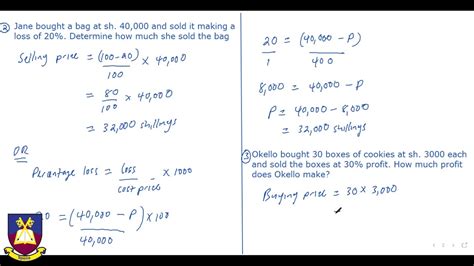 ② Jane bought a bag at sh. 40,000 and sold it making a
loss of 20%. Determine how much she sold the bag
Selling price = (100-20)/100 × 40,000
= 80/100 × 40,000
= 32,000 shillings
OR
Percentage loss = loss/cost price × 1000
20 = (40,000 - P)/40,000 × 100
20/1 = (40,000 - P)/400
8,000 = 40,000 - P
P = 40,000 - 8,000
= 32,000 shillings
③ Okello bought 30 boxes of cookies at sh. 3000 each
and sold the boxes at 30% profit. How much profit
does Okello make?
Buying price = 30 × 3,000